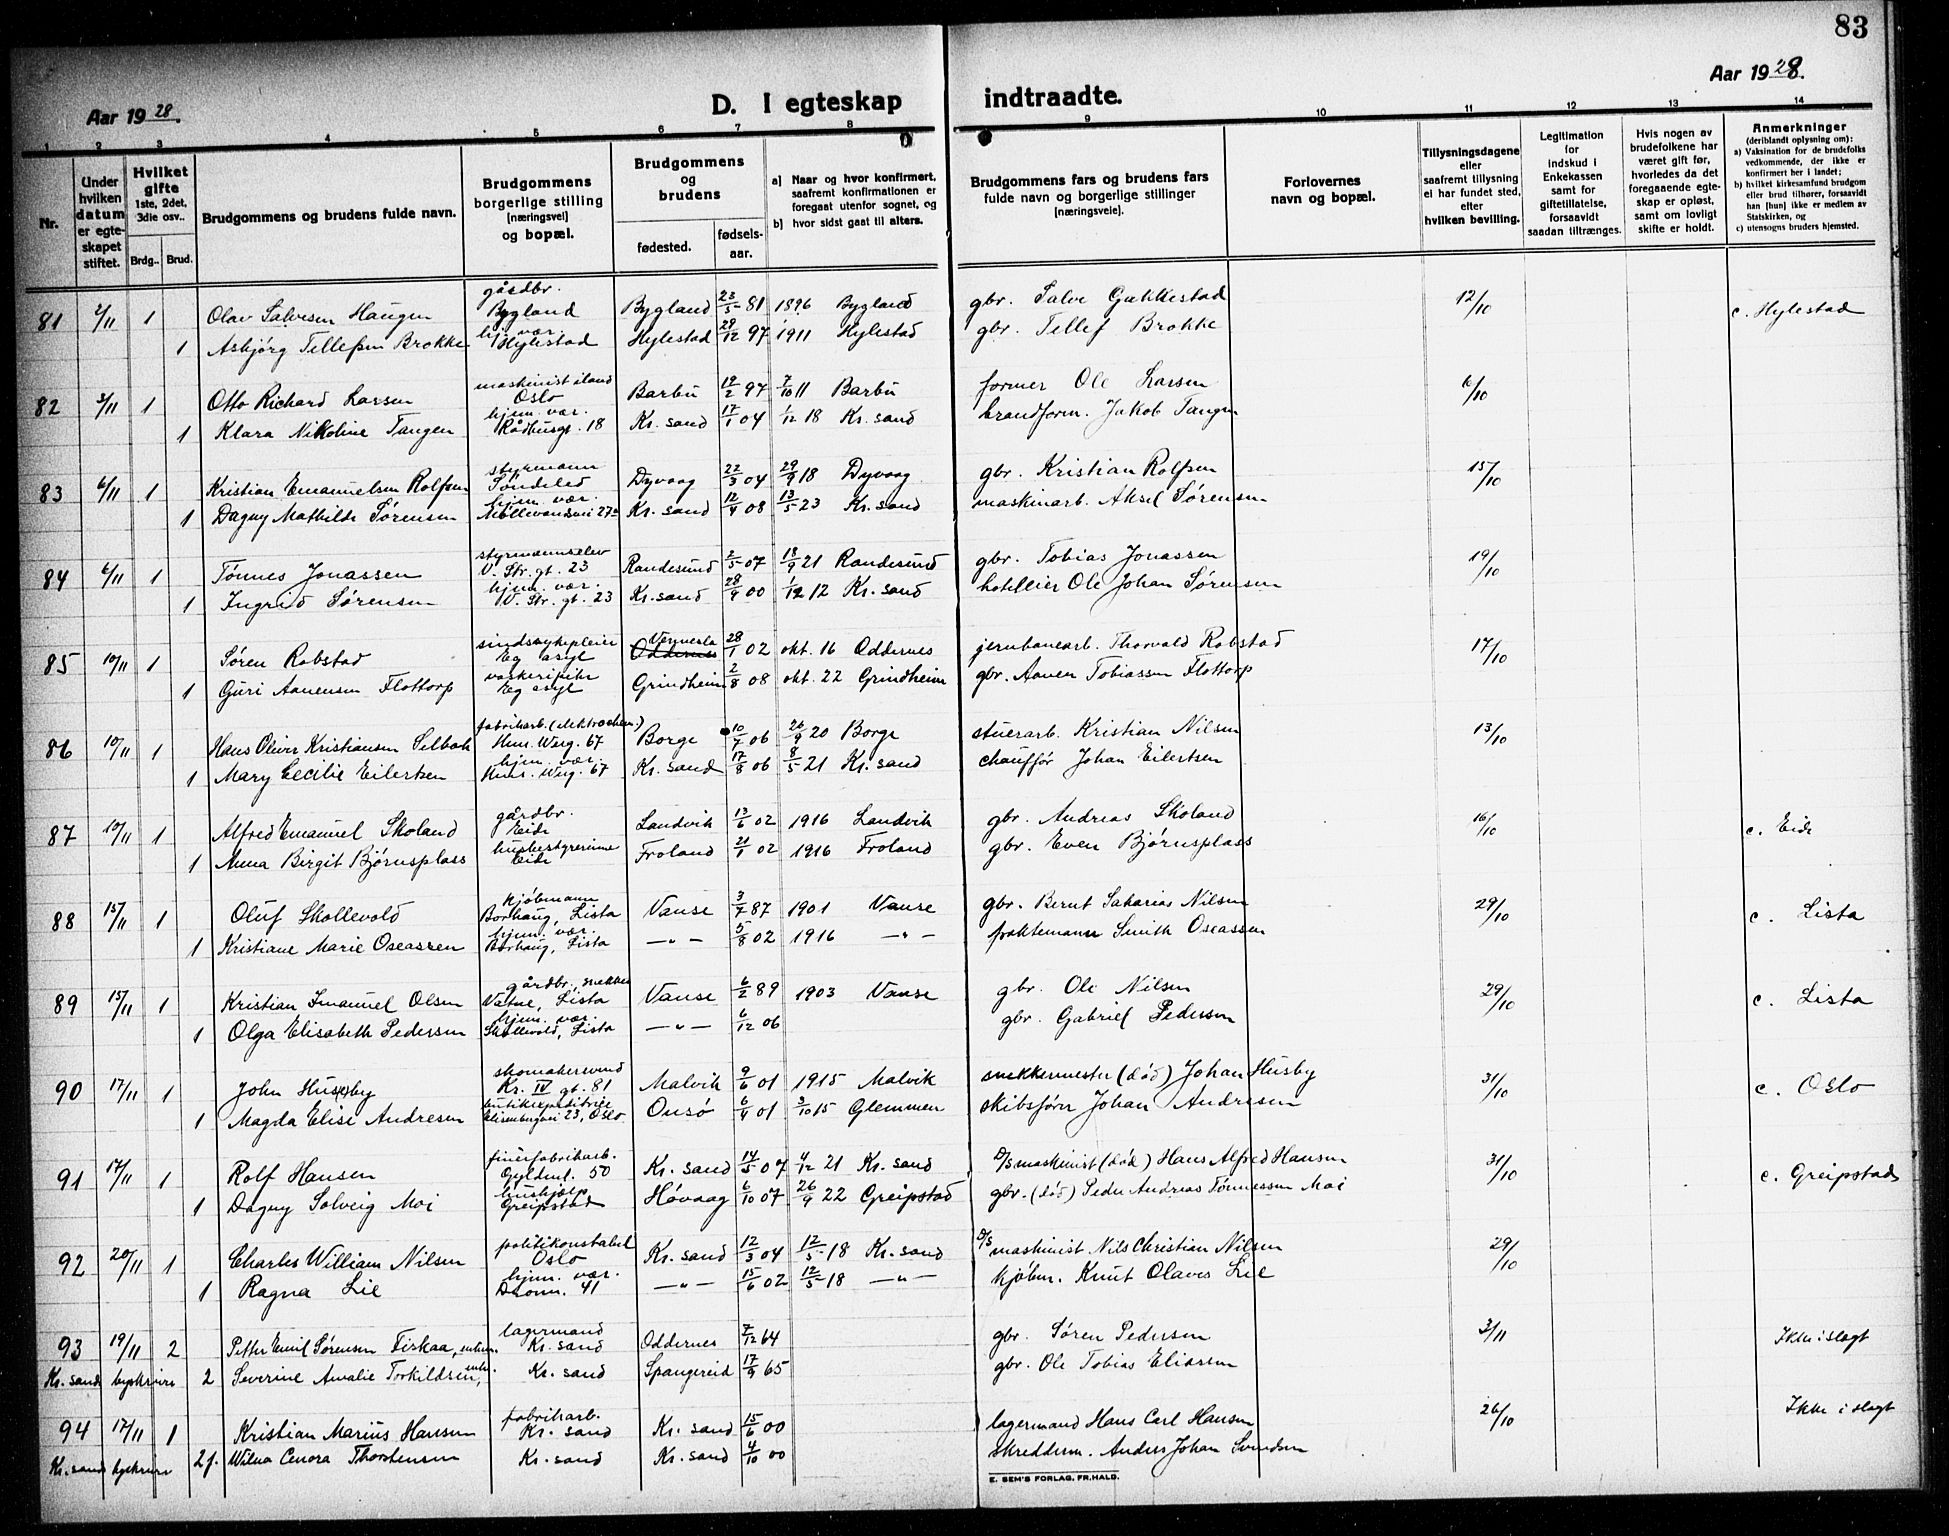 83
Aar 1928.
D. I egteskap indtraadte.
Aar 1928.
1 2 3 4 5 6 7 8 9 10 11 12 13 14
Nr.
Under hvilken datum er egteskapet stiftet.
Hvilket gifte 1ste, 2det, 3die osv..
Brdg.. Brud.
Brudgommens og brudens fulde navn.
Brudgommens borgerlige stilling [næringsvei] og bopæl.
Brudgommens og brudens
fødested. fødsels-aar.
a) Naar og hvor konfirmert, saafremt konfirmationen er foregaat utenfor sognet, og
b) hvor sidst gaat til alters.
Brudgommens fars og brudens fars fulde navn og borgerlige stillinger [næringsveie].
Forlovernes navn og bopæl.
Tillysningsdagene eller saafremt tillysning ei har fundet sted, efter hvilken bevilling.
Legitimation for indskud i Enkekassen samt for giftetillatelse, forsaavidt saadan tiltrænges.
Hvis nogen av brudefolkene har været gift før, hvorledes da det foregaaende egteskap er opløst, samt om lovligt skifte er holdt.
Anmerkninger (deriblandt oplysning om):
a) Vaksination for de brudefolks vedkommende, der ikke er konfirmert her i landet;
b) hvilket kirkesamfund brudgom eller brud tilhører, forsaavidt han [hun] ikke er medlem av Statskirken, og
c) utensogns bruders hjemsted.
81 2/11 1 Olav Salvesen Haugen gårdbr. Bygland Bygland 23/5 81 1896 Bygland gbr. Salve Gakkestad 12/10 c. Hylestad
1 Asbjørg Tellefsen Brokke hj. vær. Hylestad Hylestad 29/12 97 1911 Hylestad gbr. Tellef Brokke
82 3/11 1 Otto Richard Larsen maskinist iland Oslo Barbu 19/2 97 7/10 11 Barbu former Ole Larsen 6/10
1 Klara Nikoline Tangen hjem. vær. Rådhusgt. 18 Kr. sand 17/1 04 1/12 18 Kr. sand brandform. Jakob Tangen
83 6/11 1 Kristian Emanuelsen Rolfsen styrmann Søndeled Dyvaag 22/3 04 29/9 18 Dyvaag gbr. Kristian Rolfsen 15/10
1 Dagny Mathilde Sørensen hjem. vær. Møllevandsvei 27a Kr. sand 12/4 08 13/5 23 Kr. sand maskinarb. Aksel Sørensen
84 6/11 1 Tønnes Jonassen styrmannselev V. Str. gt. 23 Randesund 2/5 07 18/9 21 Randesund gbr. Tobias Jonassen 19/10
1 Ingrid Sørensen hjem. vær. V. Str. gt. 23 Kr. sand 28/9 00 1/12 12 Kr. sand hotellier Ole Johan Sørensen
85 10/11 1 Søren Robstad sindssykepleier Eg asyl Vennesla Oddernes 28/1 02 okt. 16 Oddernes jernbanearb. Thorvald Robstad 17/10
1 Guri Aanensen Flottorp vaskeripike Eg asyl Grindheim 2/8 08 okt. 22 Grindheim gbr. Aanen Tobiassen Flottorp
86 10/11 1 Hans Oliver Kristiansen Selbak fabrikarb. (elektrochem.) Hnr. Werg. 67 Borge 10/7 06 26/9 20 Borge stuerarb. Kristian Nilsen 13/10
1 Mary Cecilie Eilertsen hjem. vær. Hnr. Werg. 67 Kr. sand 17/8 06 8/5 21 Kr. sand chauffør Johan Eilertsen
87 10/11 1 Alfred Emanuel Skoland gårdbr. Eide Landvik 13/6 02 1916 Landvik gbr. Andreas Skoland 16/10 c. Eide
1 Anna Birgit Bjørnsplass husbestyrerinne Eide Froland 21/1 02 1916 Froland gbr. Even Bjørnsplass
88 15/11 1 Oluf Skollevold kjøbmann Borhaug, Lista Vanse 3/7 87 1901 Vanse gbr. Bernt Sakarias Nilsen 29/10 c. Lista
1 Kristiane Marie Oseassen hjem. vær. Borhaug, Lista —„— 5/8 02 1916 —„— fraktemann Smith Oseassen
89 15/11 1 Kristian Imanuel Olsen gårdbr., snekker Vatne, Lista Vanse 6/2 89 1903 Vanse gbr. Ole Nilsen 29/10 c. Lista
1 Olga Elisabeth Pedersen hjem. vær. Skollevold, Lista —„— 6/12 06 gbr. Gabriel Pedersen
90 17/11 1 John Husby skomakersvend Kr. IV gt. 81 Malvik 9/6 01 1915 Malvik snekkermester (død) Johan Husby 31/10 c. Oslo
1 Magda Elise Andresen 23, Oslo Onsø 6/4 01 3/10 15 Glemmen skibsfører Johan Andresen
91 17/11 1 Rolf Hansen finerfabrikarb. Gyldenl. 50 Kr. sand 14/5 07 4/12 21 Kr. sand D/S maskinist (død) Hans Alfred Hansen 31/10 c. Greipstad
1 Dagny Solveig Moi hushjelp Greipstad Høvaag 6/10 07 26/9 22 Greipstad gbr. (død) Peder Andreas Tønnessen Moi
92 20/11 1 Charles William Nilsen politikonstabel Oslo Kr. sand 12/3 04 12/5 18 Kr. sand D/S maskinist Nils Christian Nilsen 29/10
1 Ragna Lie hjem. vær. Dronn. 41 —„— 15/6 02 12/5 18 —„— kjøbm. Knut Olaves Lie
93 19/11 2 Petter Emil Sørensen Fiskaa, enkem. lagermand Kr. sand Oddernes 7/12 64 gbr. Søren Pedersen 3/11 Ikke i slegt
Kr. sands byskriver 2 Severine Amalie Torkildsen, enke. Kr. sand Spangereid 17/9 65 gbr. Ole Tobias Eliassen
94 17/11 1 Kristian Marius Hansen fabrikarb. Kr. sand Kr. sand 15/6 00 lagermand Hans Carl Hansen 26/10 Ikke i slegt
Kr. sands byskriver 2 f. Wilna Cenora Thorstensen Kr. sand Kr. sand 4/10 00 skredderm. Anders Johan Svendsen
E. SEM'S FORLAG, FR.HALD.